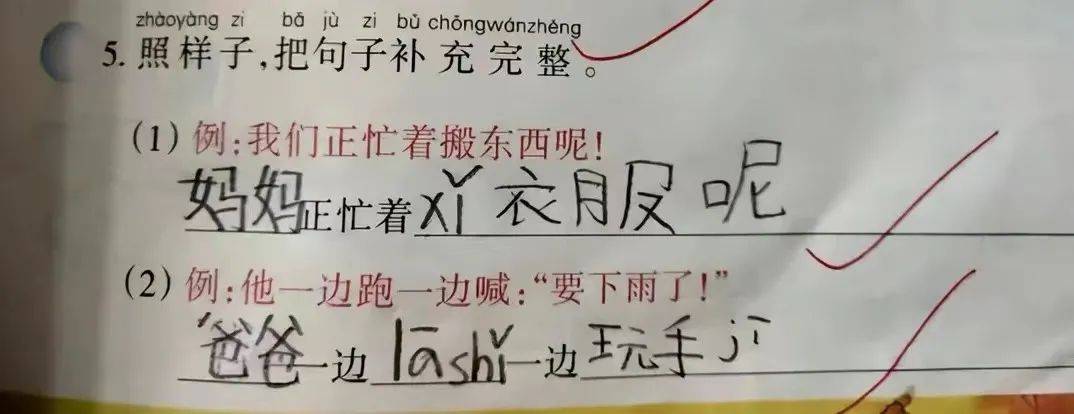 zhàoyàng zi bǎ jù zi bǔ chōngwánzhěng
5. 照样子,把句子补充完整。
(1) 例:我们正忙着搬东西呢!
妈妈正忙着xǐ衣服呢
(2) 例:他一边跑一边喊:“要下雨了!”
爸爸一边lāshǐ一边玩手jī